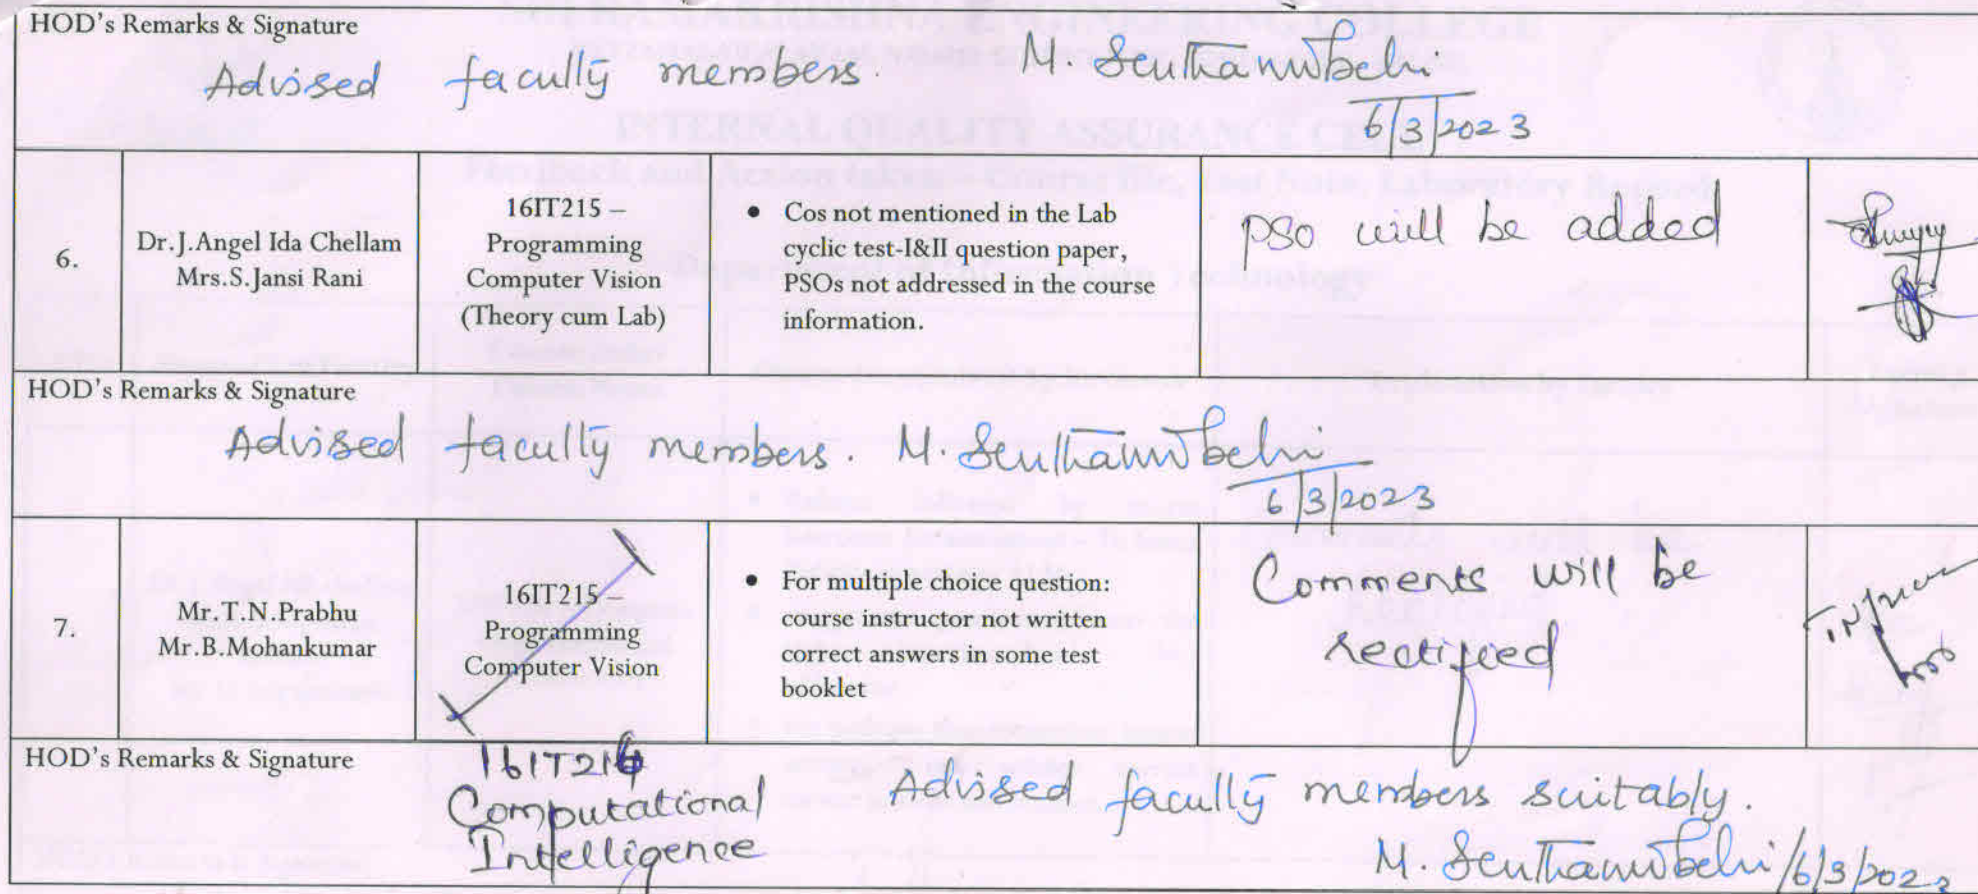 HOD's Remarks & Signature
Advised faculty members. M.
6/3/2023
6.
Dr.J.Angel Ida Chellam
Mrs.S.Jansi Rani
16IT215 –
Programming
Computer Vision
(Theory cum Lab)
• Cos not mentioned in the Lab
cyclic test-I&II question paper,
PSOs not addressed in the course
information.
PSO will be added
HOD's Remarks & Signature
Advised faculty members. M.
6/3/2023
7.
Mr.T.N.Prabhu
Mr.B.Mohankumar
16IT215 –
Programming
Computer Vision
• For multiple choice question:
course instructor not written
correct answers in some test
booklet
Comments will be
rectified
HOD's Remarks & Signature
16IT216
Computational
Intelligence
Advised faculty members suitably.
M. /6/3/2023
INTERNAL QUALITY ASSURANCE CELL